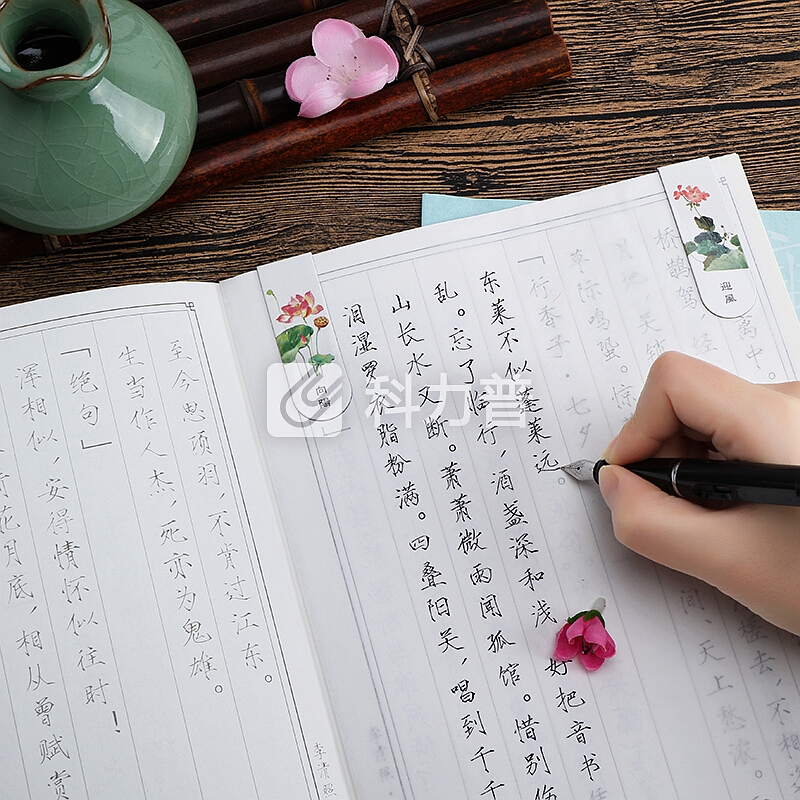 花月底，相从曾赋赏
浑相似，安得情怀似往时！
「绝句」
生当作人杰，死亦为鬼雄。
至今思项羽，不肯过江东。
李清照
泪湿罗衣脂粉满。四叠阳关，唱到千千
山长水又断。萧萧微雨闻孤馆。惜别伤
乱。忘了临行，酒盏深和浅 好把音书
东莱不似蓬莱远。
「行香子·七夕
草际鸣蛩。惊
间、天上愁浓。
桥鹊驾 经
去，不相
迎風
科力普